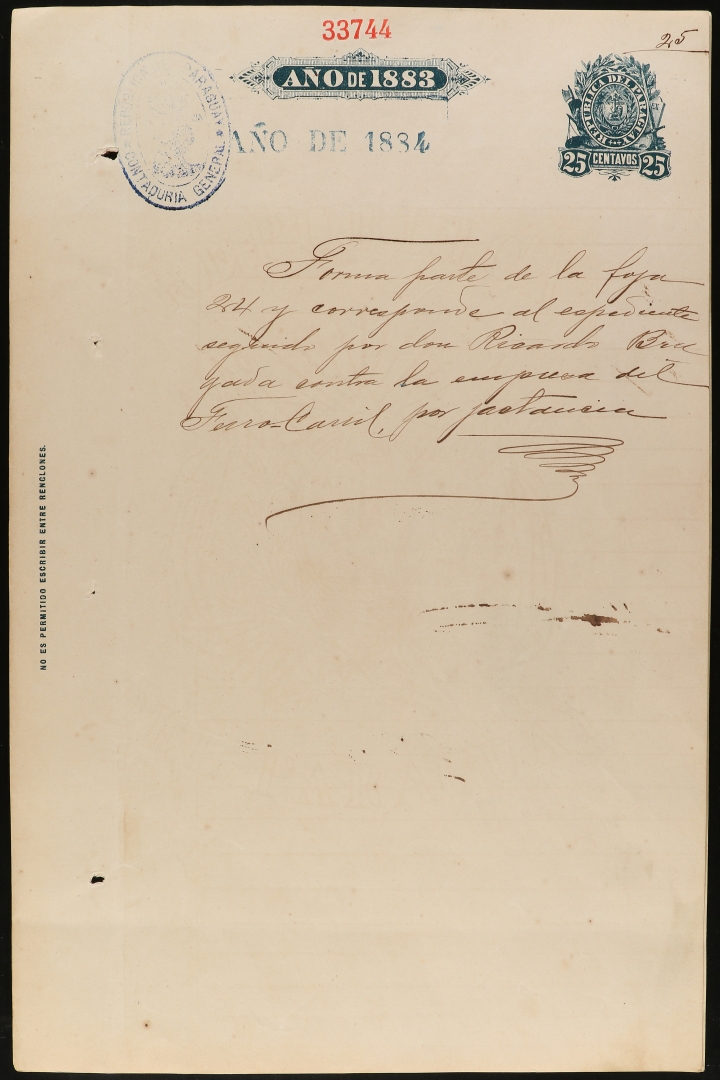 33744
25
AÑO DE 1883
REPUBLICA DEL PARAGUAY
25 CENTAVOS 25
PARAGUAY
CONTADURIA GENERAL
AÑO DE 1884
Forma parte de la foja
24 y corresponde al espediente
seguido por don Ricardo
contra la empresa del
Ferro-Carril, por jactancia
NO ES PERMITIDO ESCRIBIR ENTRE RENGLONES.